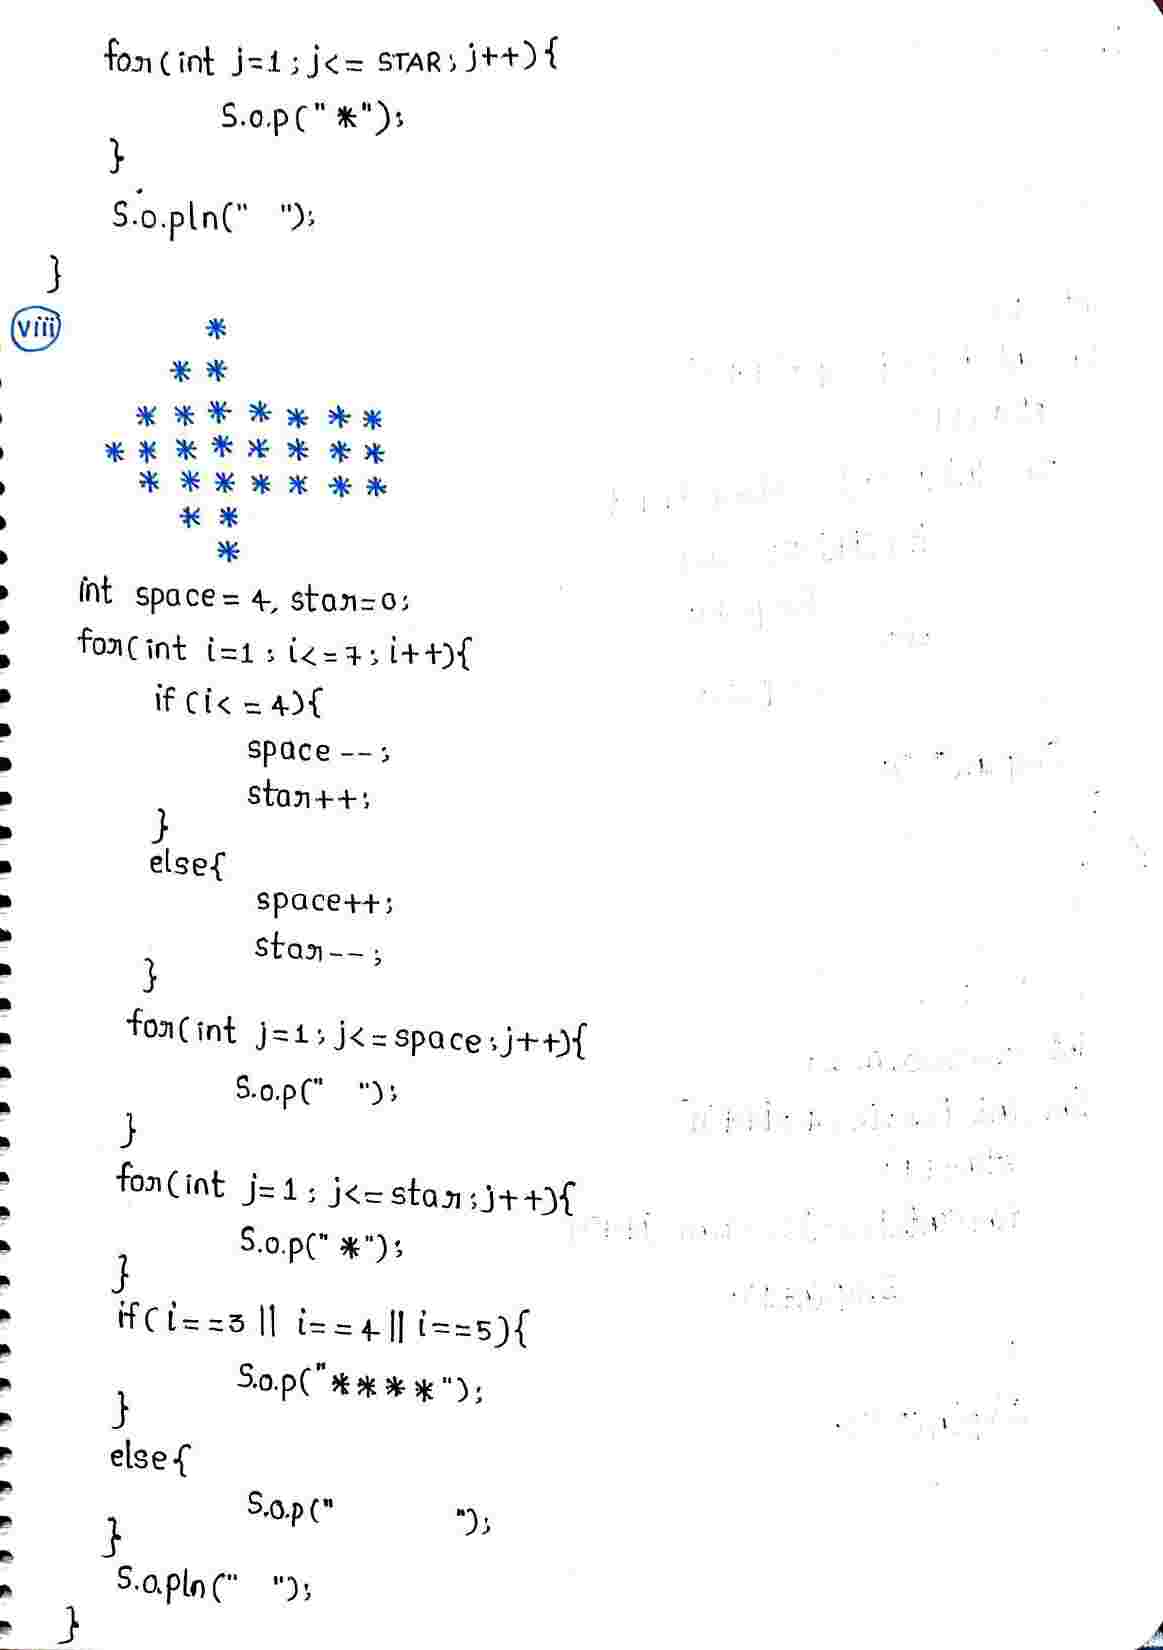 for(int j=1; j<= STAR; j++){
S.o.p("*");
}
S.o.pln(" ");
}
viii
*
* *
* * * * * * *
* * * * * * * *
* * * * * * *
* *
*
int space = 4, star=0;
for(int i=1; i<=7; i++){
if (i< = 4){
space --;
star++;
}
else{
space++;
star--;
}
for(int j=1; j<=space; j++){
S.o.p(" ");
}
for(int j=1; j<=star; j++){
S.o.p("*");
}
if(i==3 || i==4 || i==5){
S.o.p("****");
}
else{
S.o.p(" ");
}
S.o.pln(" ");
}